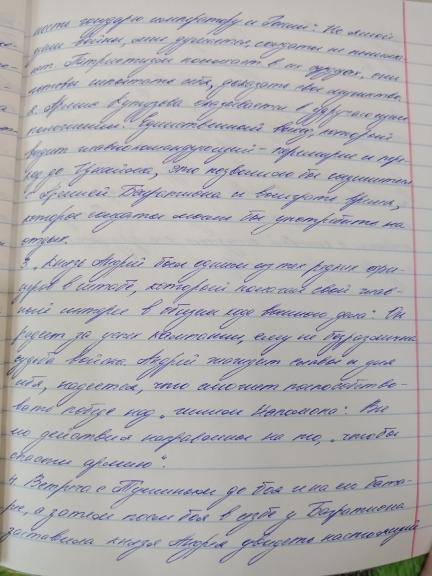 ность государю императору и
войны, мне думается, солдаты не понима-
ют. Патриотизм помогает в их сердцах, они
готовы испытать себя, доказать свое мужество.
2. Армия Кутузова оказывается в
положении. Единственный выход, который
видит главнокомандующий – перемирие и
до Цнайма, это позволило бы соединиться
с Армией Багратиона и выиграть время,
которое солдаты могли бы употребить на
отдых.
3. „Князь Андрей был одним из тех редких офи-
церов в штабе, который полагал свой глав-
ный интерес в общем ходе военного дела“. Он
радеет за успех кампании, ему не безразлична
судьба войны. Андрей жаждет славы и для
себя, надеется, что сможет поспособство-
вать победе над „гением Наполеона“. Все
его действия направлены на то, „чтобы
спасти армию“.
4. Встреча с Тушиным до боя и на его бата-
рее, а затем после боя в избе у Багратиона
заставила князя Андрея увидеть настоящий